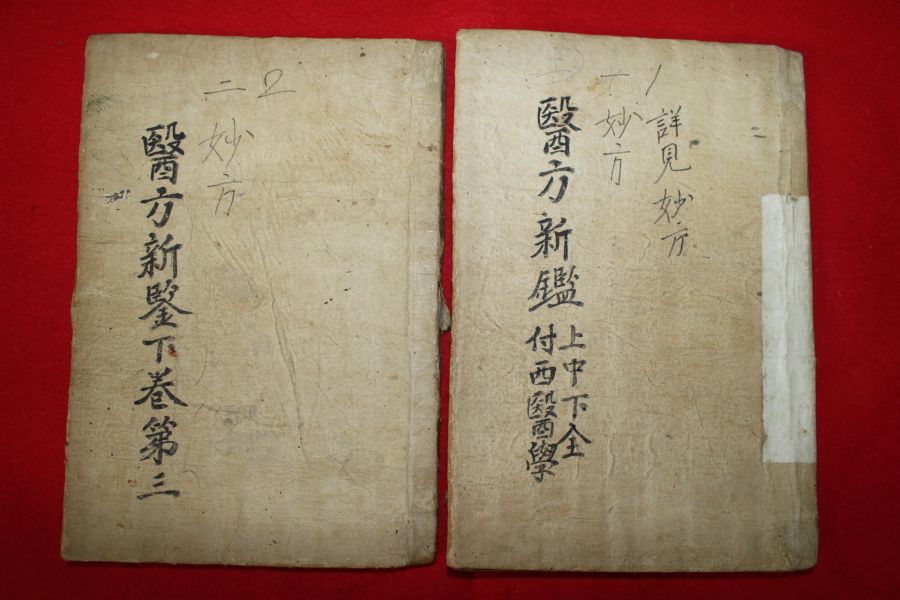 二 2
妙方
醫方新鑒下卷第三
一 1
詳見妙方
妙方
醫方新鑑
上中下全
付西醫學